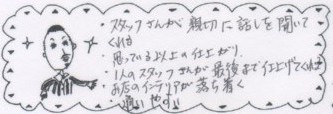 ・スタッフさんが親切に話しを聞いて
くれる
・思っている以上の仕上がり
・1人のスタッフさんが最後まで仕上げてくれる
・お店のインテリアが落ち着く
・通いやすい